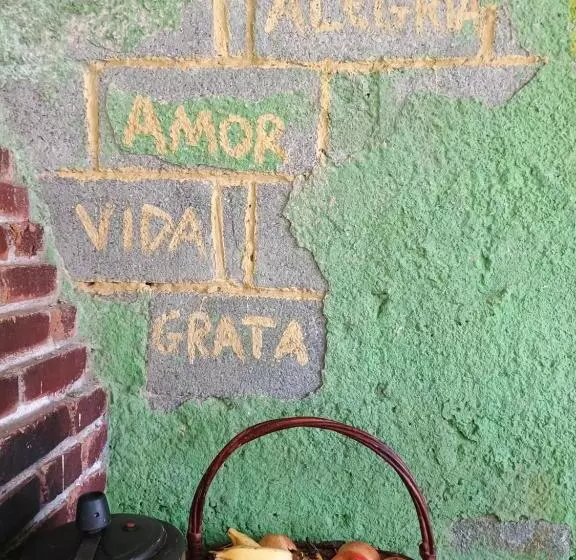 ALEGRIA
AMOR
VIDA
GRATA